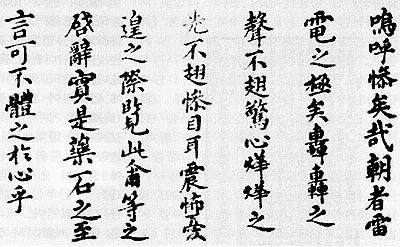 嗚呼慘矣哉朝者雷
電之極矣轟轟之
聲不翅驚心燁燁之
光不翅慘目耳震怖憂
遑之際覽此奮等之
啓辭實是藥石之至
言可不體之於心乎